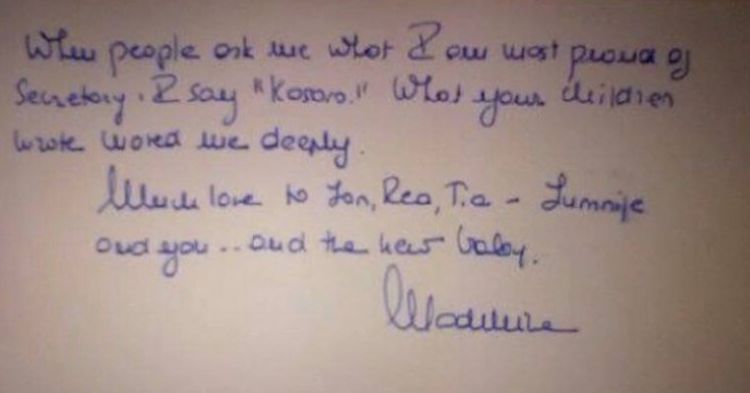 When people ask me what I am most proud of
Secretary. I say "Kosovo." What your children
wrote moved me deeply.
Much love to Jon, Rea, Tia - Lumnije
and you .. and the new baby.
Madeleine